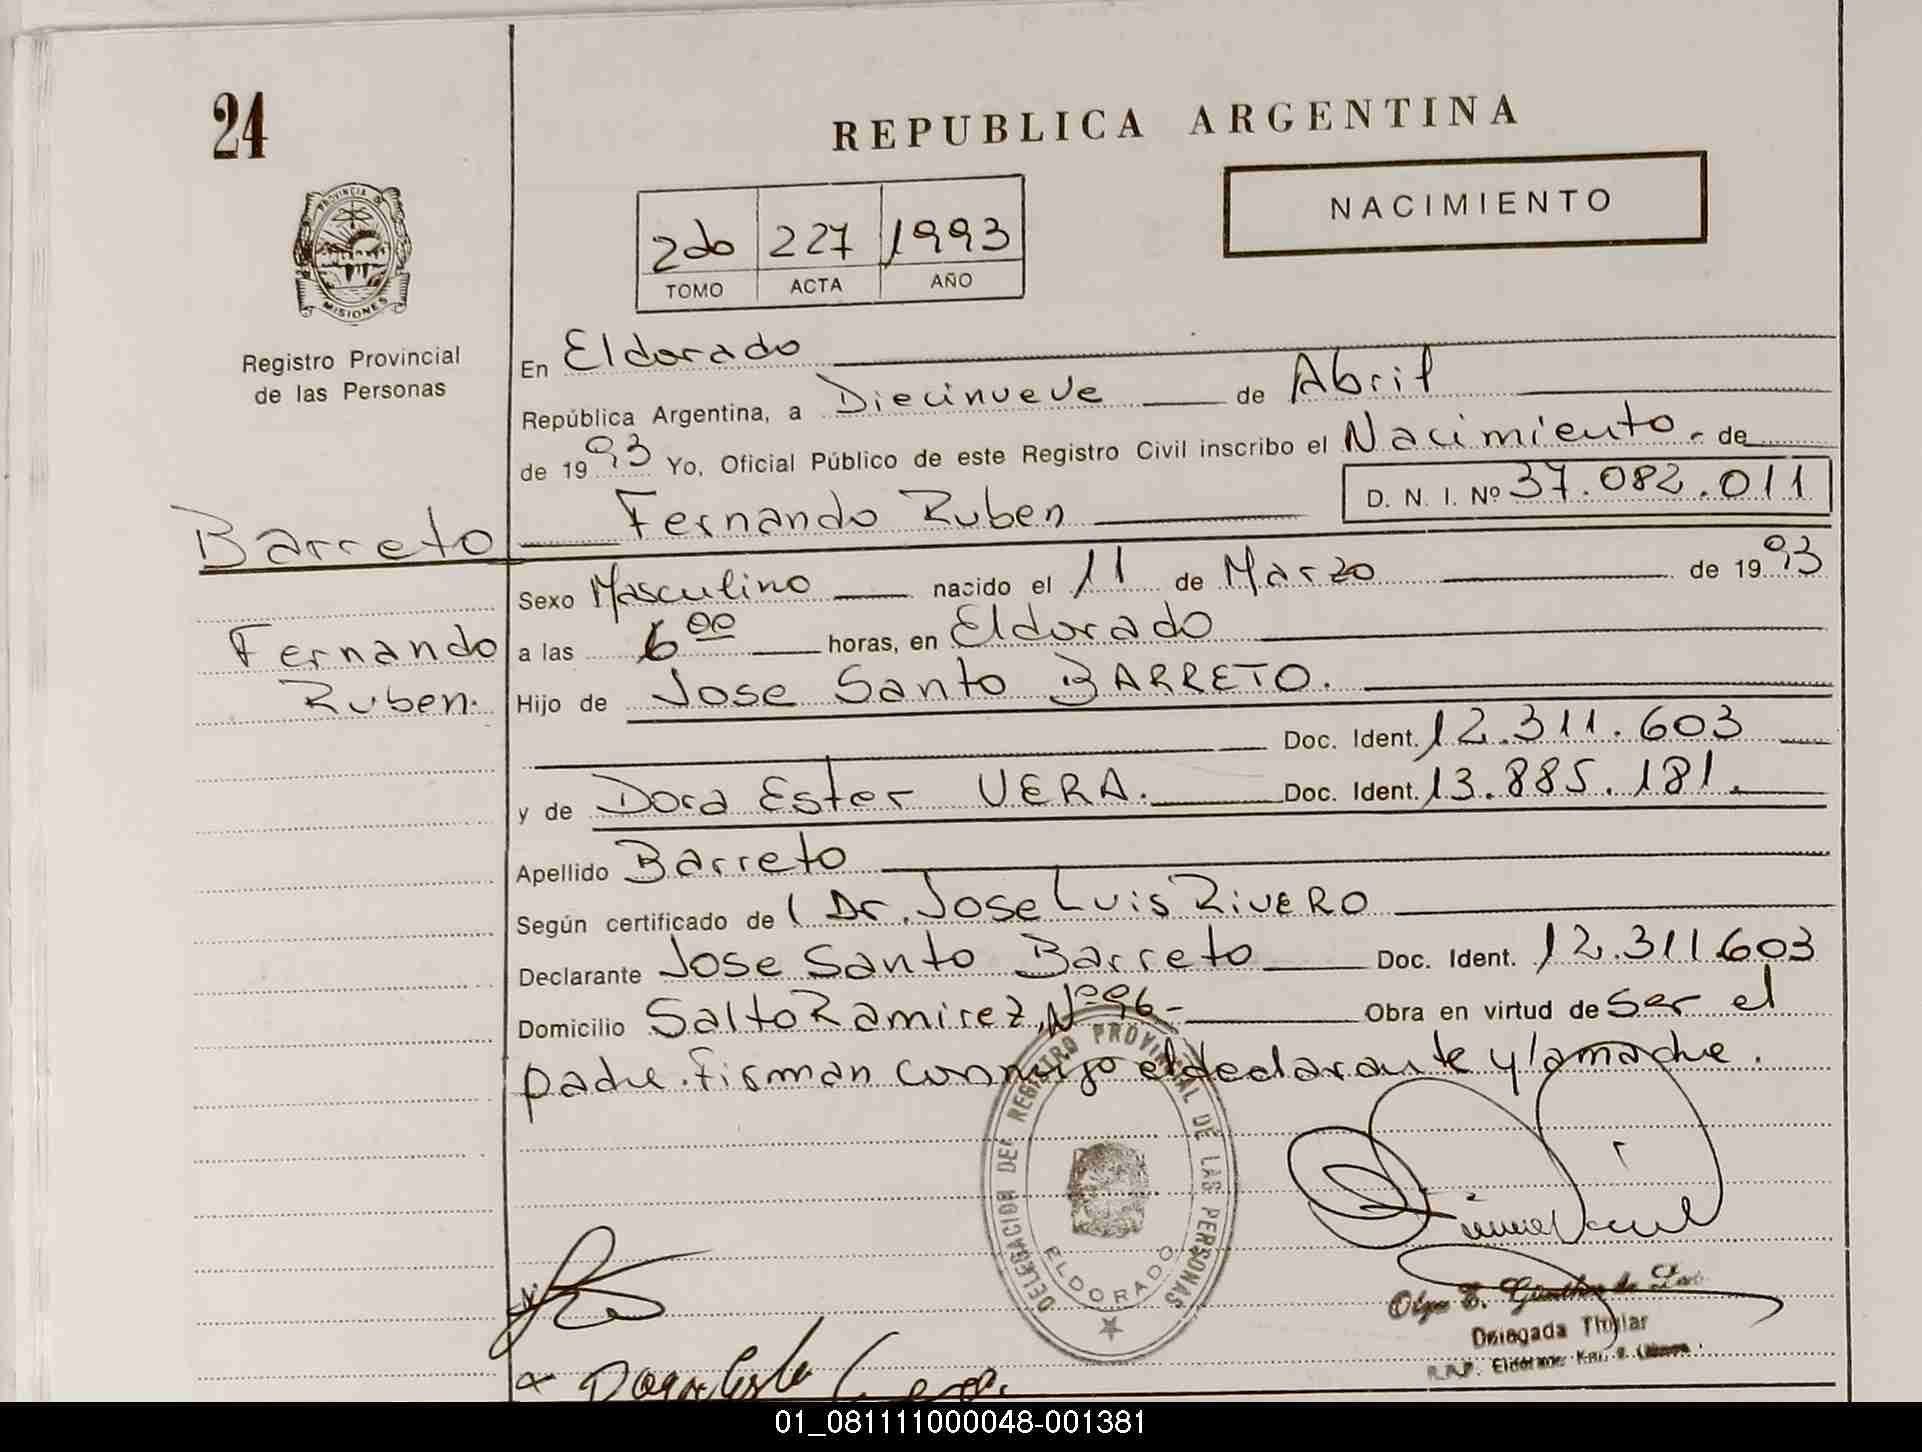 24
REPUBLICA ARGENTINA
NACIMIENTO
2do 227 1993
TOMO ACTA AÑO
PROVINCIA DE
MISIONES
Registro Provincial
de las Personas
En Eldorado
República Argentina, a Diecinueve de Abril
de 1993 Yo, Oficial Público de este Registro Civil inscribo el Nacimiento - de
D. N. I. Nº 37.082.011
Barreto Fernando Ruben
Sexo Masculino nacido el 11 de Marzo de 1993
Fernando a las 6 00 horas, en Eldorado
Ruben. Hijo de Jose Santo BARRETO.
Doc. Ident. 12.311.603
y de Dora Ester VERA. Doc. Ident. 13.885.181.
Apellido Barreto
Según certificado de Dr. Jose Luis RIVERO
Declarante Jose Santo Barreto Doc. Ident. 12.311.603
Domicilio Salto Ramirez Nº 96- Obra en virtud de ser el
padre. Firman conmigo el declarante y la madre.
DELEGACION DEL REGISTRO PROVINCIAL DE LAS PERSONAS
ELDORADO
Olga E.
Delegada Titular
R.P.P. Eldorado
01_081111000048-001381